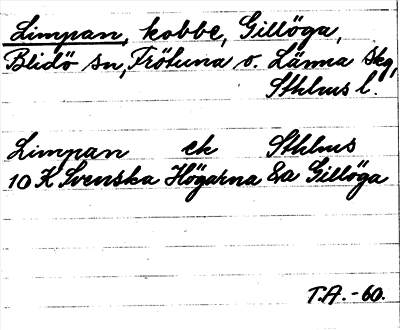 Limpan, kobbe, Gillöga,
Blidö sn, Frötuna o. Länna skg,
Sthlms l.
Limpan ek Sthlms
10 K Svenska Högarna &a Gillöga
T.A. -60.